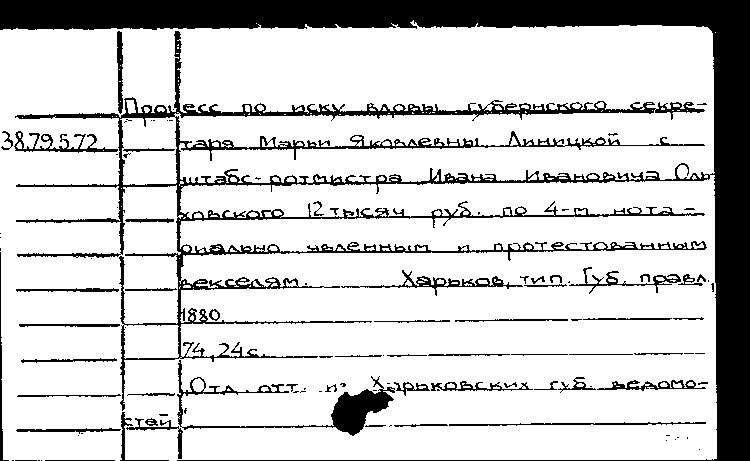 Процесс по иску вдовы губернского секре-
38.79.572 таря Марьи Яковлевны Линицкой с
штабс-ротмистра Ивана Ивановича Оль-
ховского 12 тысяч руб. по 4-м нота-
риально явленным и протестованным
векселям. Харьков, тип. Губ. правл.,
1880.
74, 24 с.
"Отд. отт. из Харьковских губ. ведомо-
стей"